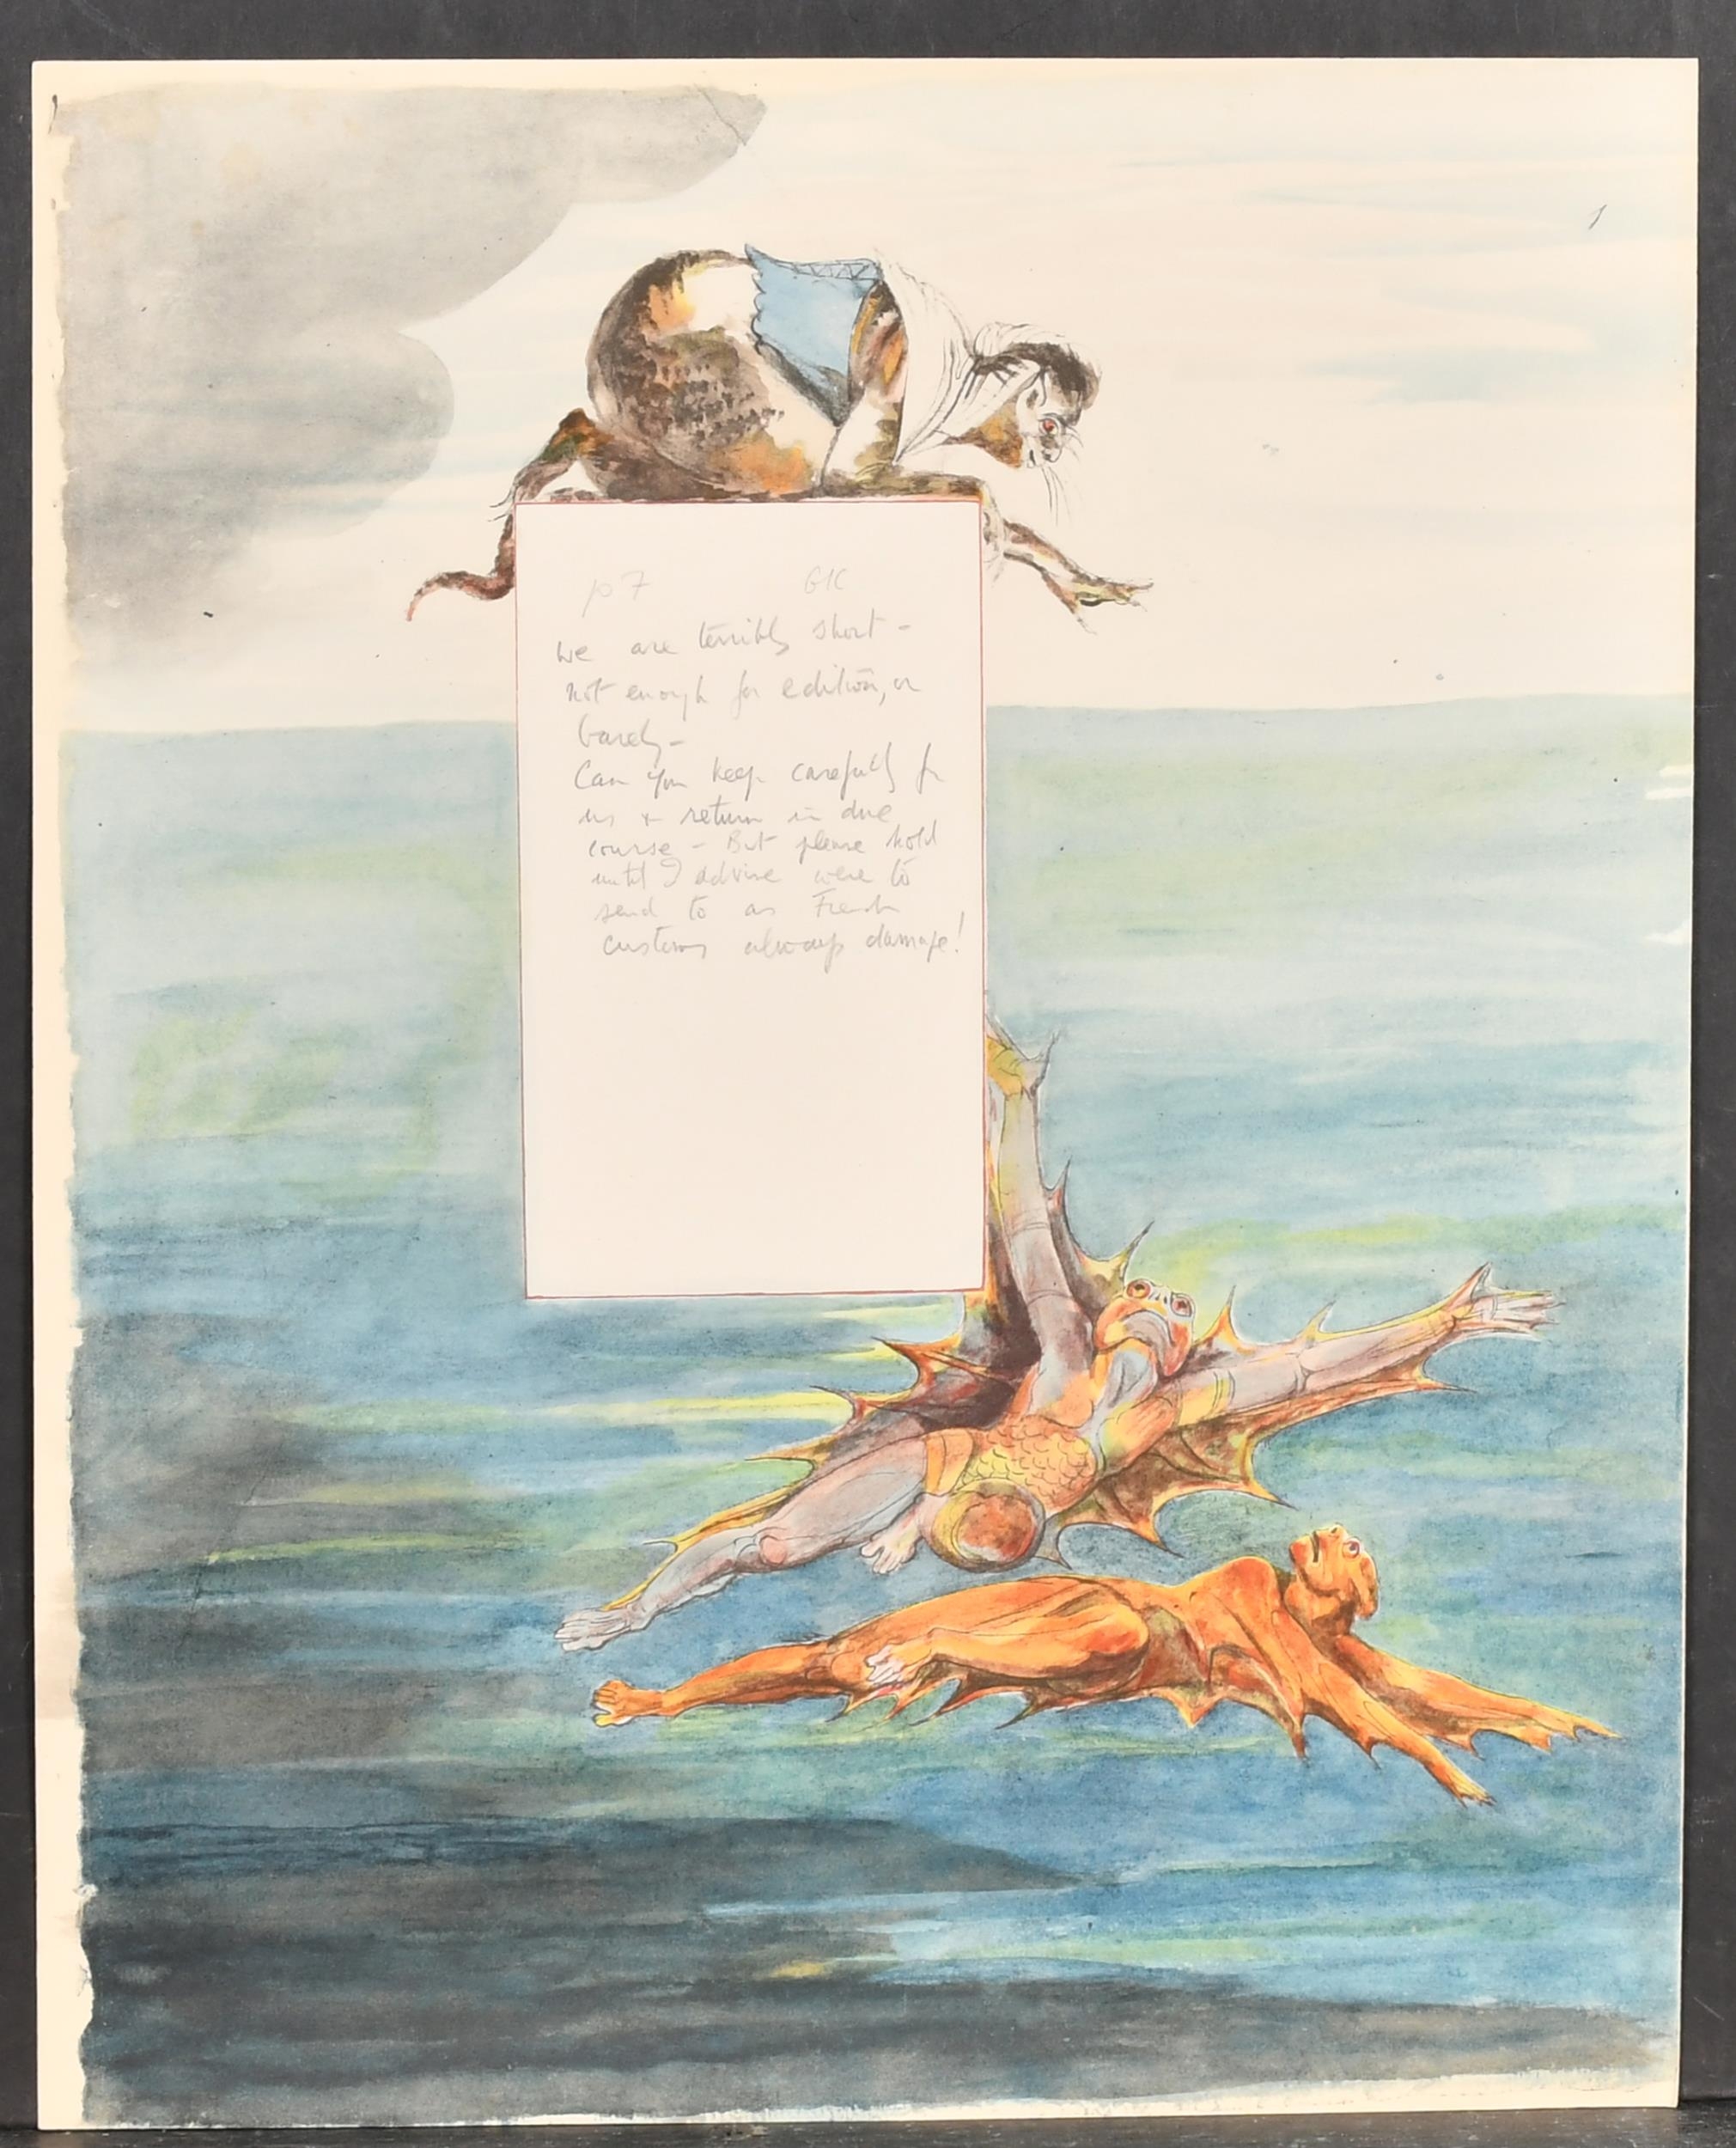 p 7 GK
We are terribly short -
not enough for edition, or
barely -
Can you keep carefully for
us + return in due
course - But please hold
until I advise were to
send to as French
customs always damage!